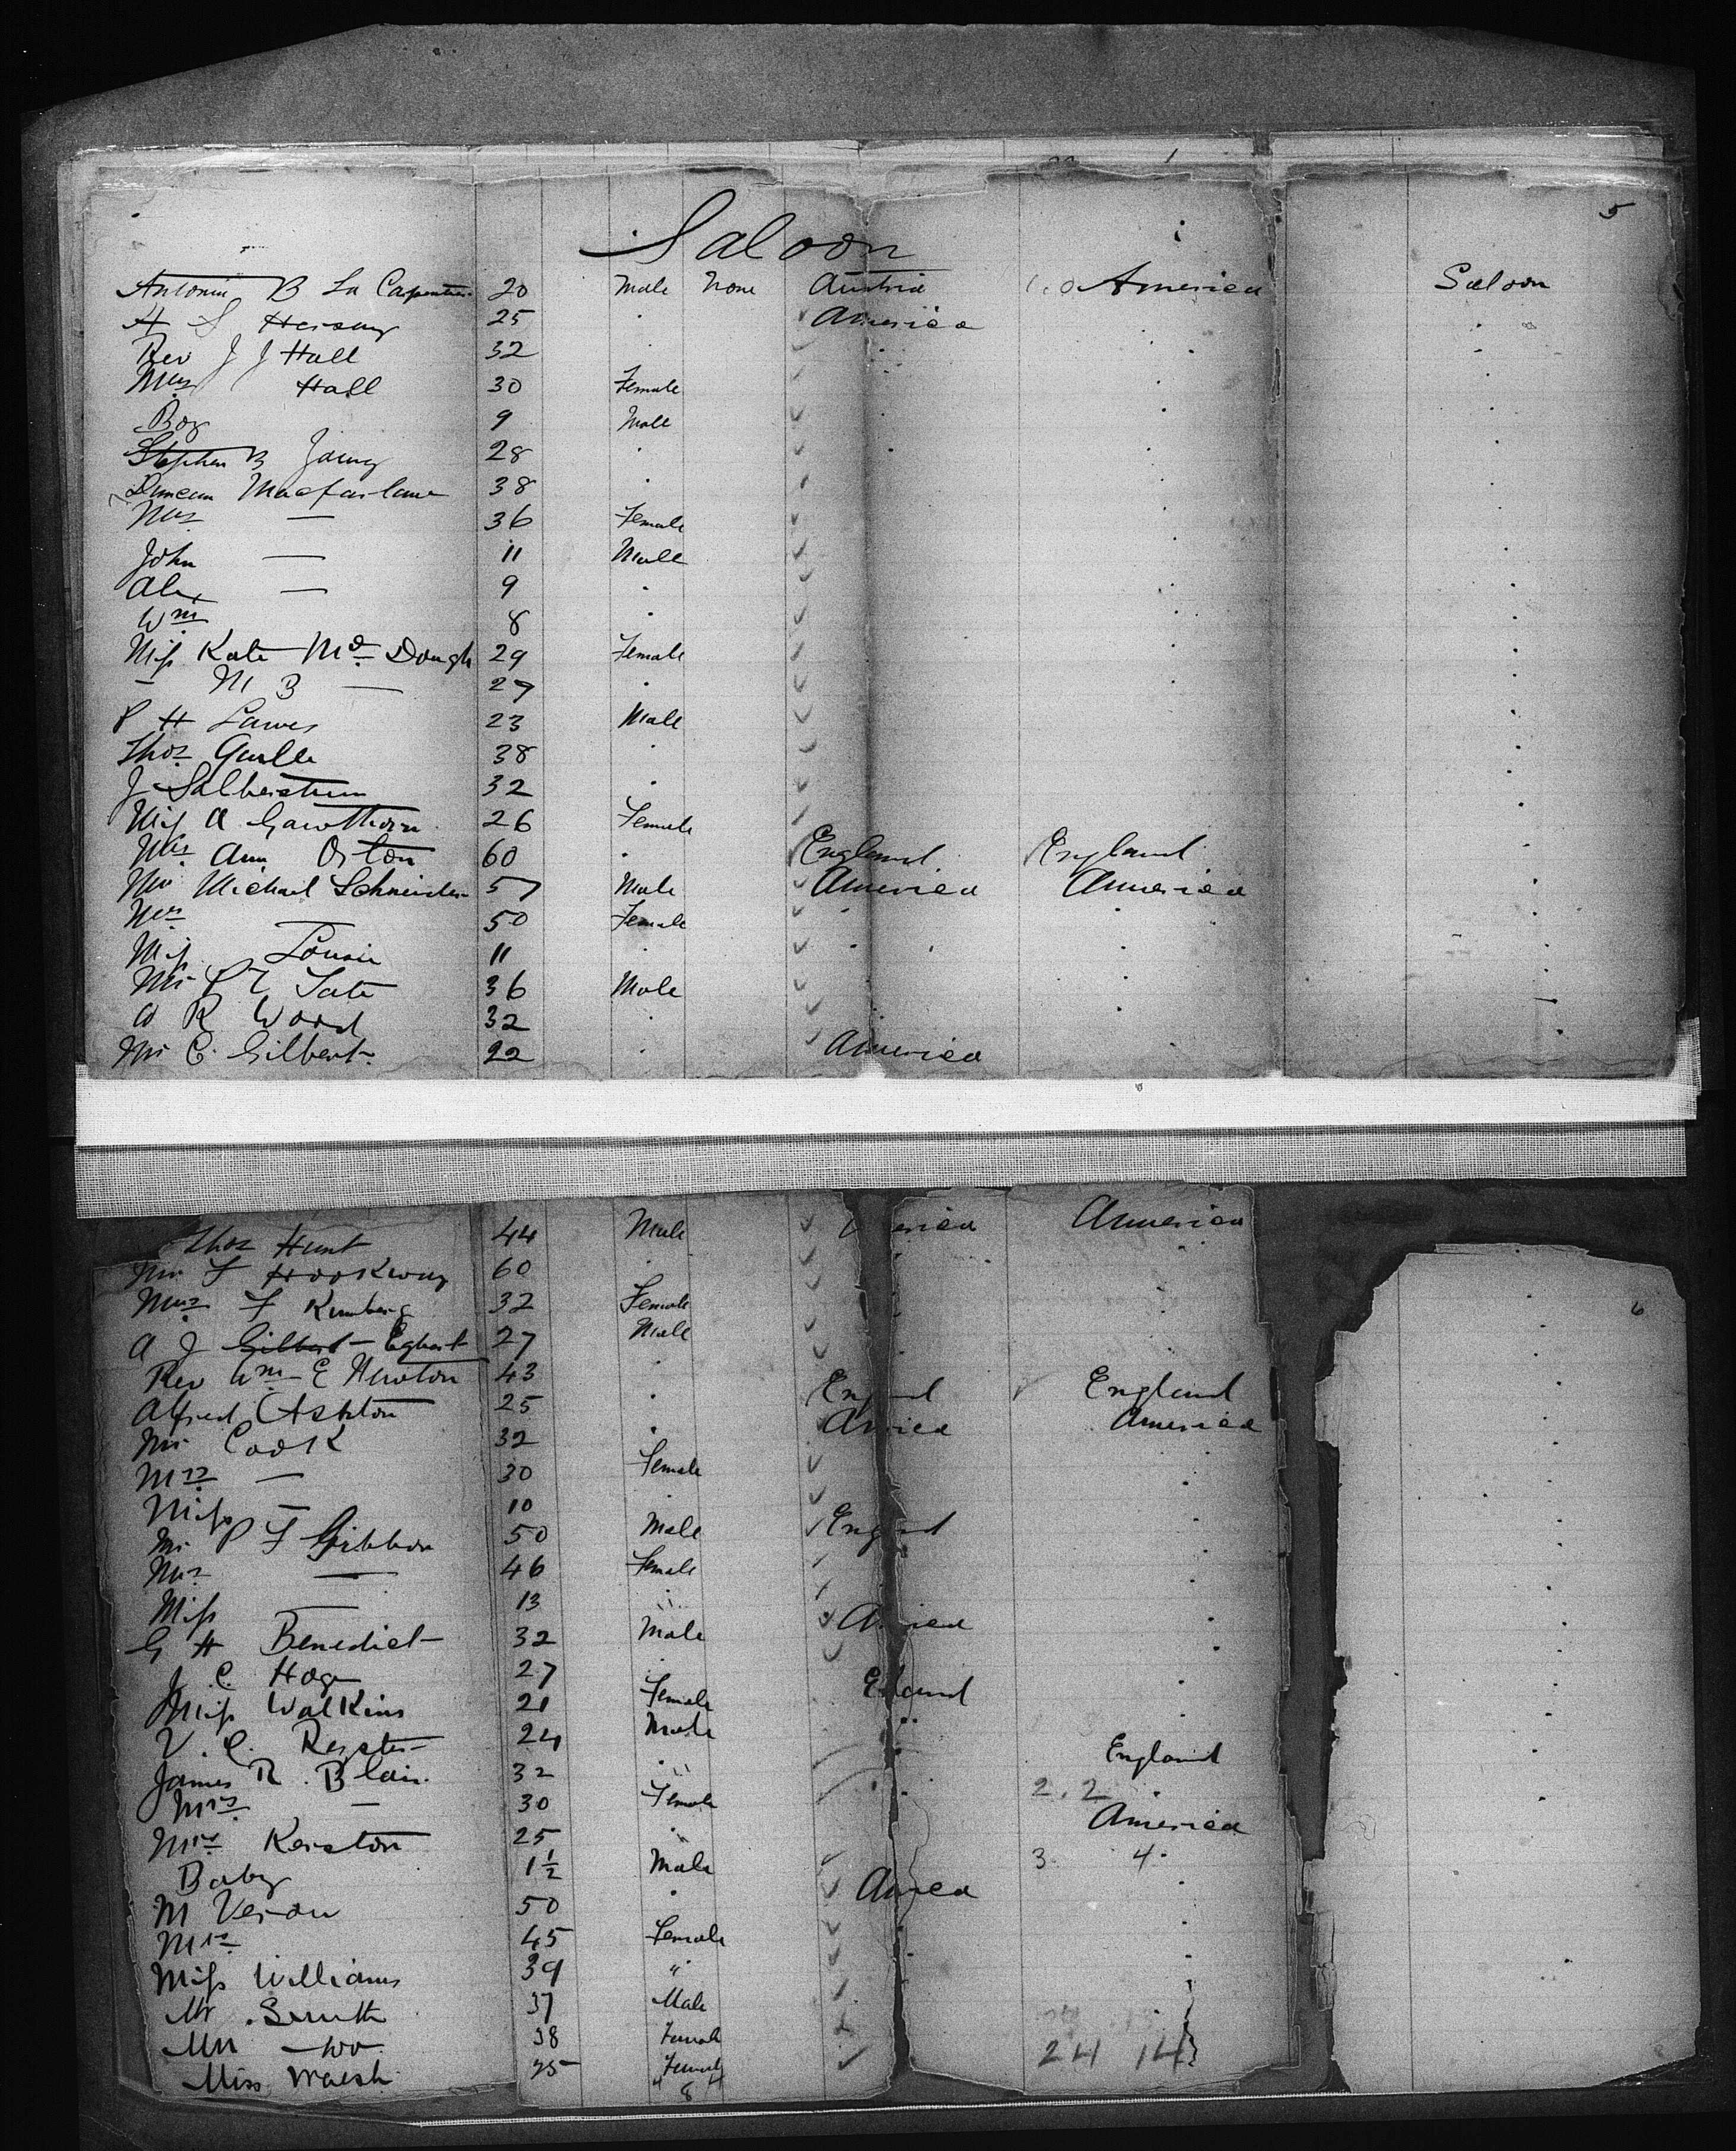 5
Saloon
Antonin B La Carpentier 20 Male None Austria America Saloon
H S Hersey 25 " America
Rev J J Hall 32 "
Mrs Hall 30 Female
Boy 9 Male
Stephen B 28 "
Duncan Macfarlane 38 "
Mrs — 36 Female
John — 11 Male
Alex — 9 "
Wm 8 "
Miss Kate Mc Dough 29 Female
— M B — 27 "
P H Lawes 23 Male
Thos 38 "
J 32 "
Miss A Gawthorn 26 Female
Mrs Ann Orton 60 " England England
Mr Michael Schneider 57 Male America America
Mrs 50 Female
Miss Louise 11 "
Mr Tate 36 Male
W R Wood 32 "
Mr C. Gilbert 22 " America
Thos Hunt 44 Male America
Mr F Hookway 60 "
6
Mrs F 32 Female
A J Gilbert Egbert 27 Male
Rev Wm E Newton 43 " England England
Alfred Ashton 25 " America America
Mr Cook 32 "
Mrs — 30 Female
Miss — 10
Mr P F Gibbon 50 Male England
Mrs — 46 Female
Miss — 13 "
G H Benedict 32 Male America
J. C. Hoge 27 "
Miss Watkins 21 Female England
V. C. 24 Male England
James R. Blair 32 "
Mrs — 30 Female 2. 2
Mrs Kerston 25 " America
Baby 1½ Male 3. 4.
M Veron 50 " America
Mrs 45 Female
Miss Williams 39 "
Mr Smith 37 Male
Mrs —do— 38 Female
24 14
Miss Walsh 25 Female
8